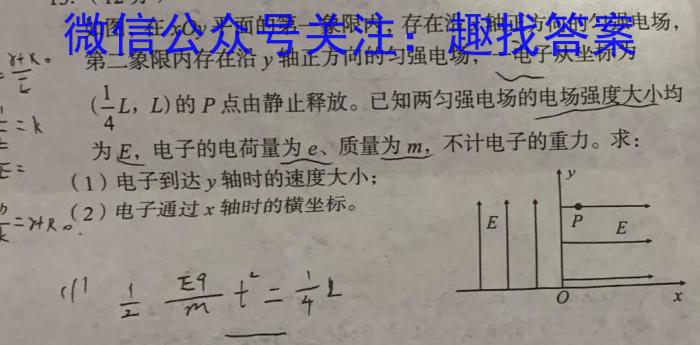 微信公众号关注:趣找答案
图,在xOy平面的第一象限内,存在沿x轴正方向的匀强电场,
第二象限内存在沿y轴正方向的匀强电场,一电子从坐标为
(1/4L,L)的P点由静止释放。已知两匀强电场的电场强度大小均
为E,电子的电荷量为e、质量为m,不计电子的重力。求:
(1)电子到达y轴时的速度大小;
(2)电子通过x轴时的横坐标。
y
E
P
E
O
x
(1) 1/2 Eq/m t² = 1/4 L